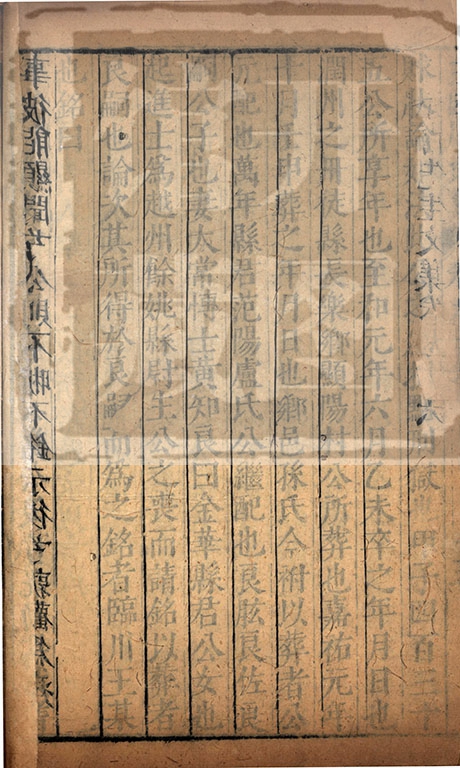 甲子四百三十
五公所享年也至和元年六月乙未卒之年月日也
潤州之丹徒縣長樂鄉顯陽村公所葬也嘉祐元年
十月壬申葬之年月日也鄉邑孫氏今祔以葬者公
元配也萬年縣君范陽盧氏公繼配也良肱良佐良
嗣公子也妻太常博士黃知良曰金華縣君公女也
起進士爲越州餘姚縣尉主公之喪而請銘以葬者
良嗣也論次其所得於良嗣而爲之銘者臨川王某
也銘曰
事彼能顯聞世公則不晰不銘示後世孰勸爲